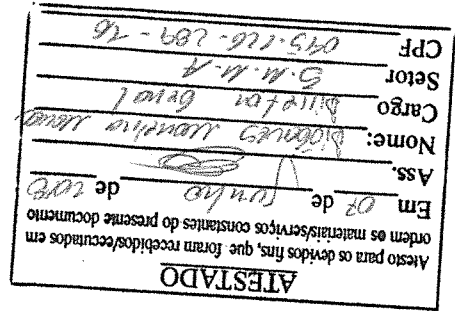 ATESTADO
Atesto para os devidos fins, que foram recebidos/executados em
ordem os materiais/serviços constantes do presente documento
Em 07 de junho de
Ass.
Nome: Diogenes
Cargo Diretor Geral
Setor S.M.M.A
CPF 045.126.289-76